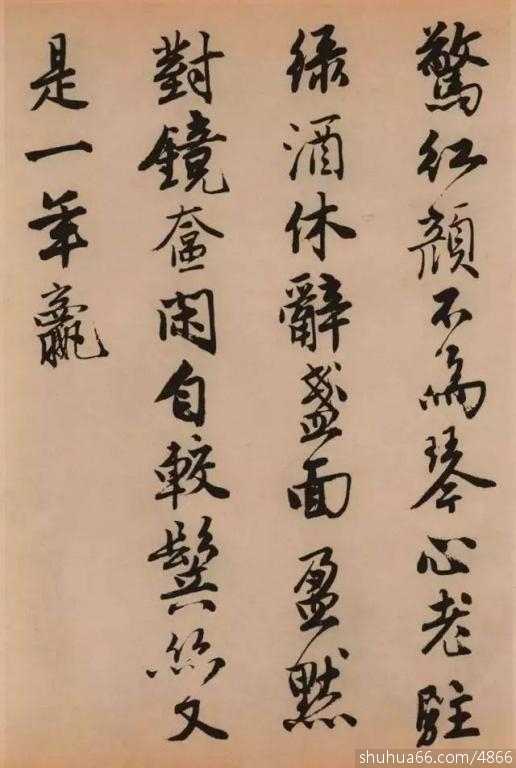 驚紅顏不為琴心老駐
緑酒休辭盞面盈默
對鏡奩閑自較鬓絲又
是一年贏
shuhua66.com/4866